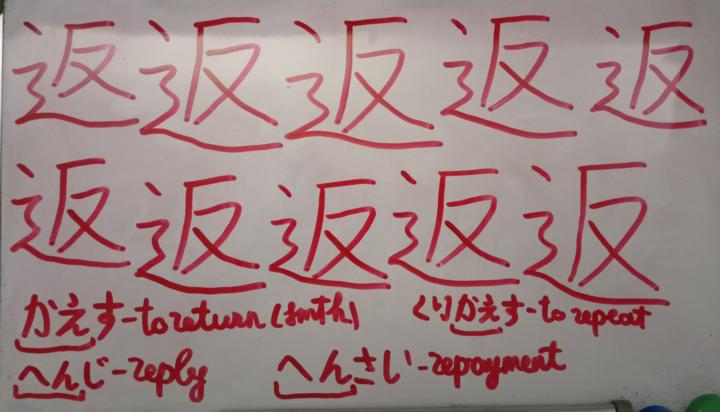 返返返返返
返返返返返
かえす-to return (smth.) くりかえす-to repeat
へんじ-reply へんさい-repayment